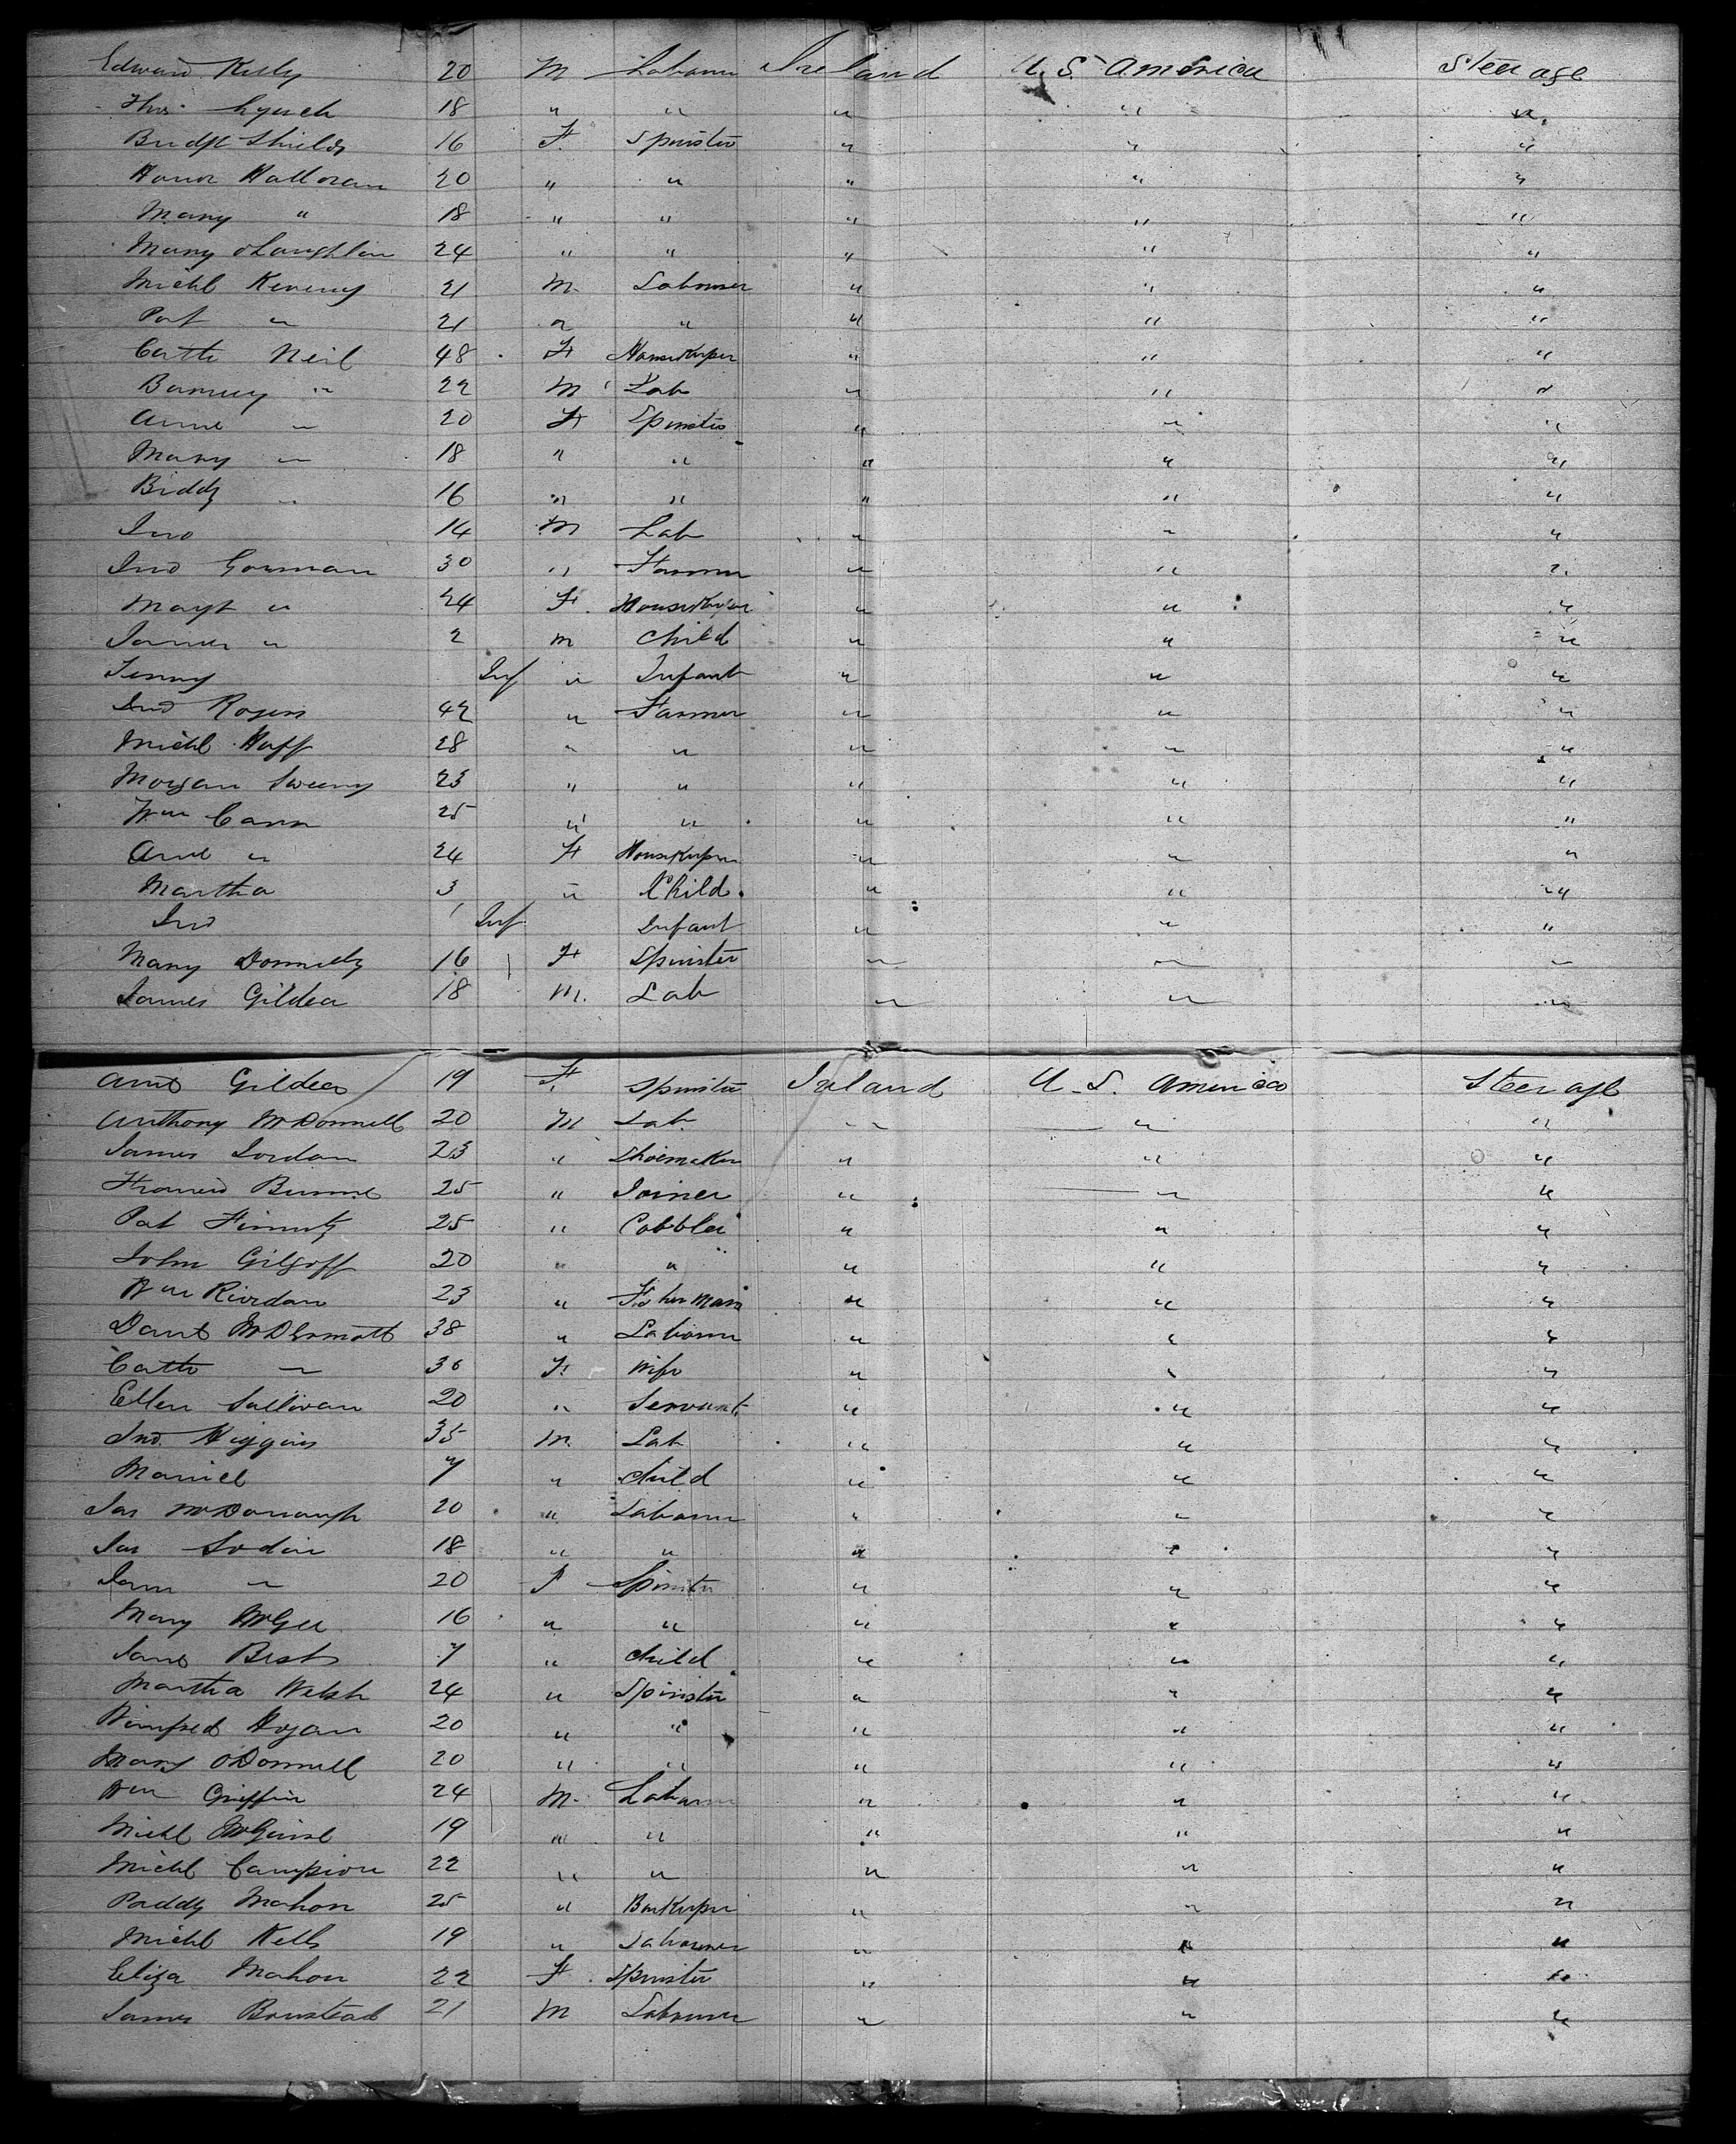 Edward Kelly 20 M Labourer Ireland U.S. America Steerage
Thos Lynch 18 " " " " "
Bridgt Shields 16 F. Spinster " " "
Honor Halloran 20 " " " " "
Mary " 18 " " " " "
Mary oLaughlin 24 " " " " "
Michl Keveny 21 M. Labourer " " "
Pat " 21 " " " " "
Cath Neil 48 F Housekeeper " " "
Barney " 22 M Lab " " "
Anne " 20 F Spinster " " "
Mary " 18 " " " " "
Biddy " 16 " " " " "
Jno 14 M Lab " " "
Jno Gorman 30 " Farmer " " "
Margt " 24 F. Housekeeper " " "
James " 2 m Child " " "
Inf " Infant " " "
Jno Rogers 42 " Farmer " " "
Michl Huff 28 " " " " "
Morgan Sweeny 23 " " " " "
Wm Cann 25 " " " " "
Ann " 24 F Housekeeper " " "
Martha 3 " Child. " " "
Jno Inf Infant " " "
Mary Donnelly 16 F Spinster " " "
James Gildea 18 M. Lab " " "
Ann Gildea 19 F. Spinster Ireland U.S. America Steerage
Anthony McDonnell 20 M Lab. " " "
James Jordan 23 " Shoemaker " " "
25 " Joiner " " "
Pat 25 " Cobbler " " "
John 20 " " " " "
Wm Riordan 23 " Fisherman " " "
McDermott 38 " Labourer " " "
Cath " 36 F. Wife " " "
Ellen Sullivan 20 " Servant " " "
Jno. Higgins 35 M. Lab " " "
7 " Child " " "
Jas McDonough 20 " Labourer " " "
Jas 18 " " " " "
" 20 F Spinster " " "
Mary McGee 16 " " " " "
Jane Best 7 " Child " " "
Martha Welsh 24 " Spinster " " "
Winifred Hogan 20 " " " " "
Mary ODonnell 20 " " " " "
Wm Griffin 24 M. Labourer " " "
Michl 19 " " " " "
Michl Campion 22 " " " " "
Paddy Mahon 25 " Barkeeper " " "
Michl Kells 19 " Labourer " " "
Eliza Mahon 22 F. Spinster " " "
James Boustead 21 M Labourer " " "